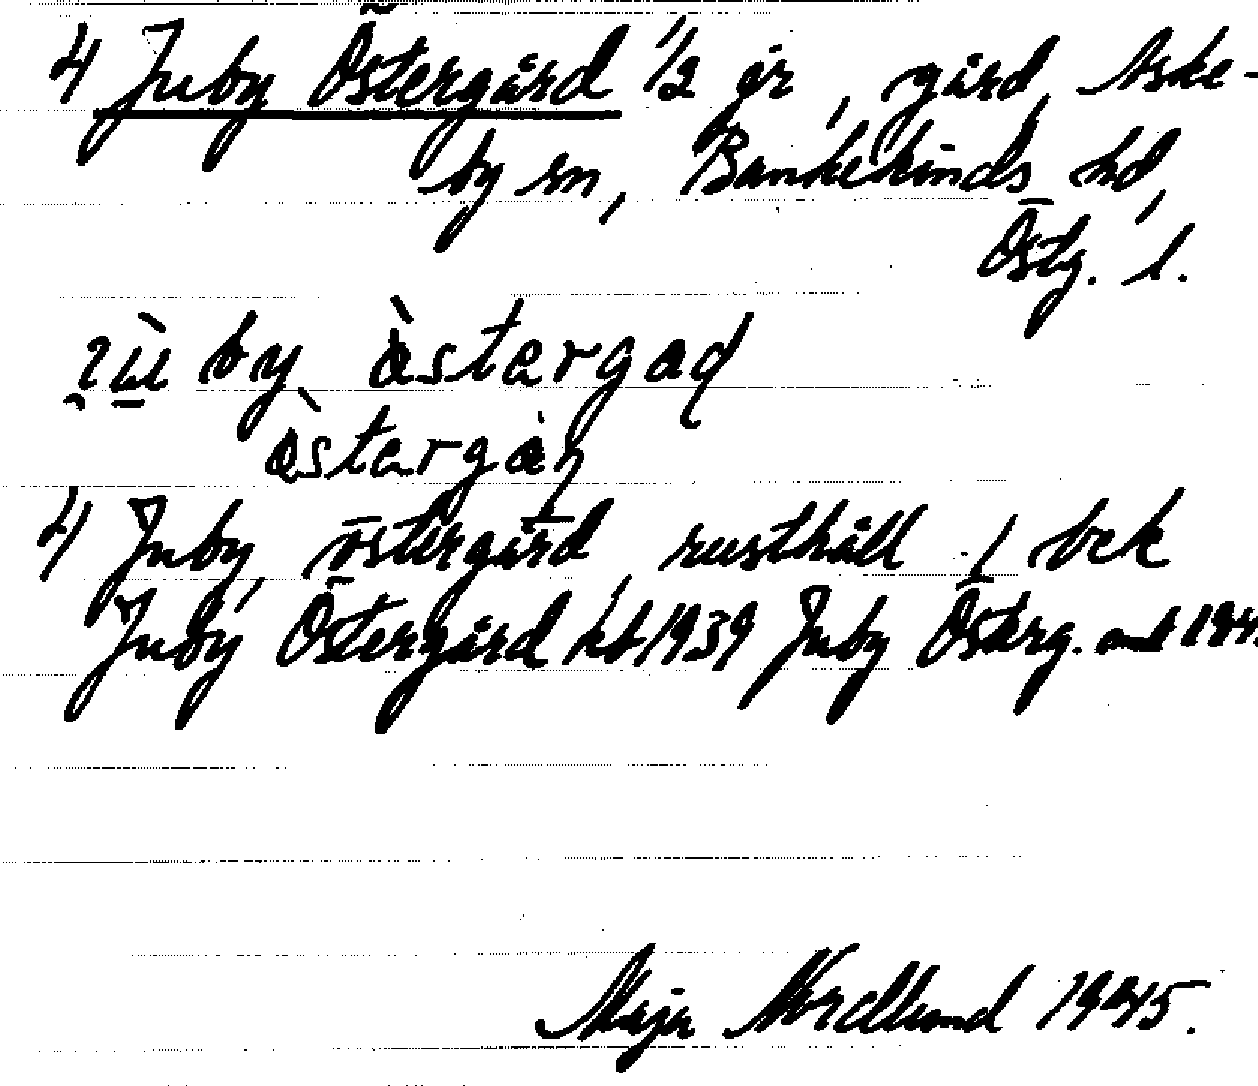 4 Juby Östergård 1/2 år, gård, Aske-
by sn, Bankekinds hd,
Östg. l.
by, östergad
östergån
4 Juby, östergård, rusthåll 1 bek
Juby Östergård kb 1939 Juby Österg.
Maja Nordlund 1945.